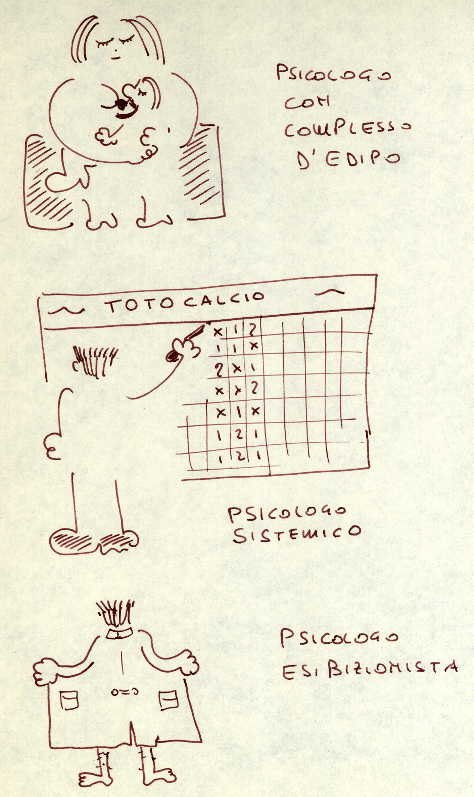 PSICOLOGO
CON
COMPLESSO
D'EDIPO
TOTOCALCIO
X 1 2
1 1 X
2 X 1
X X 2
X 1 X
1 2 1
1 2 1
PSICOLOGO
SISTEMICO
PSICOLOGO
ESIBIZIONISTA